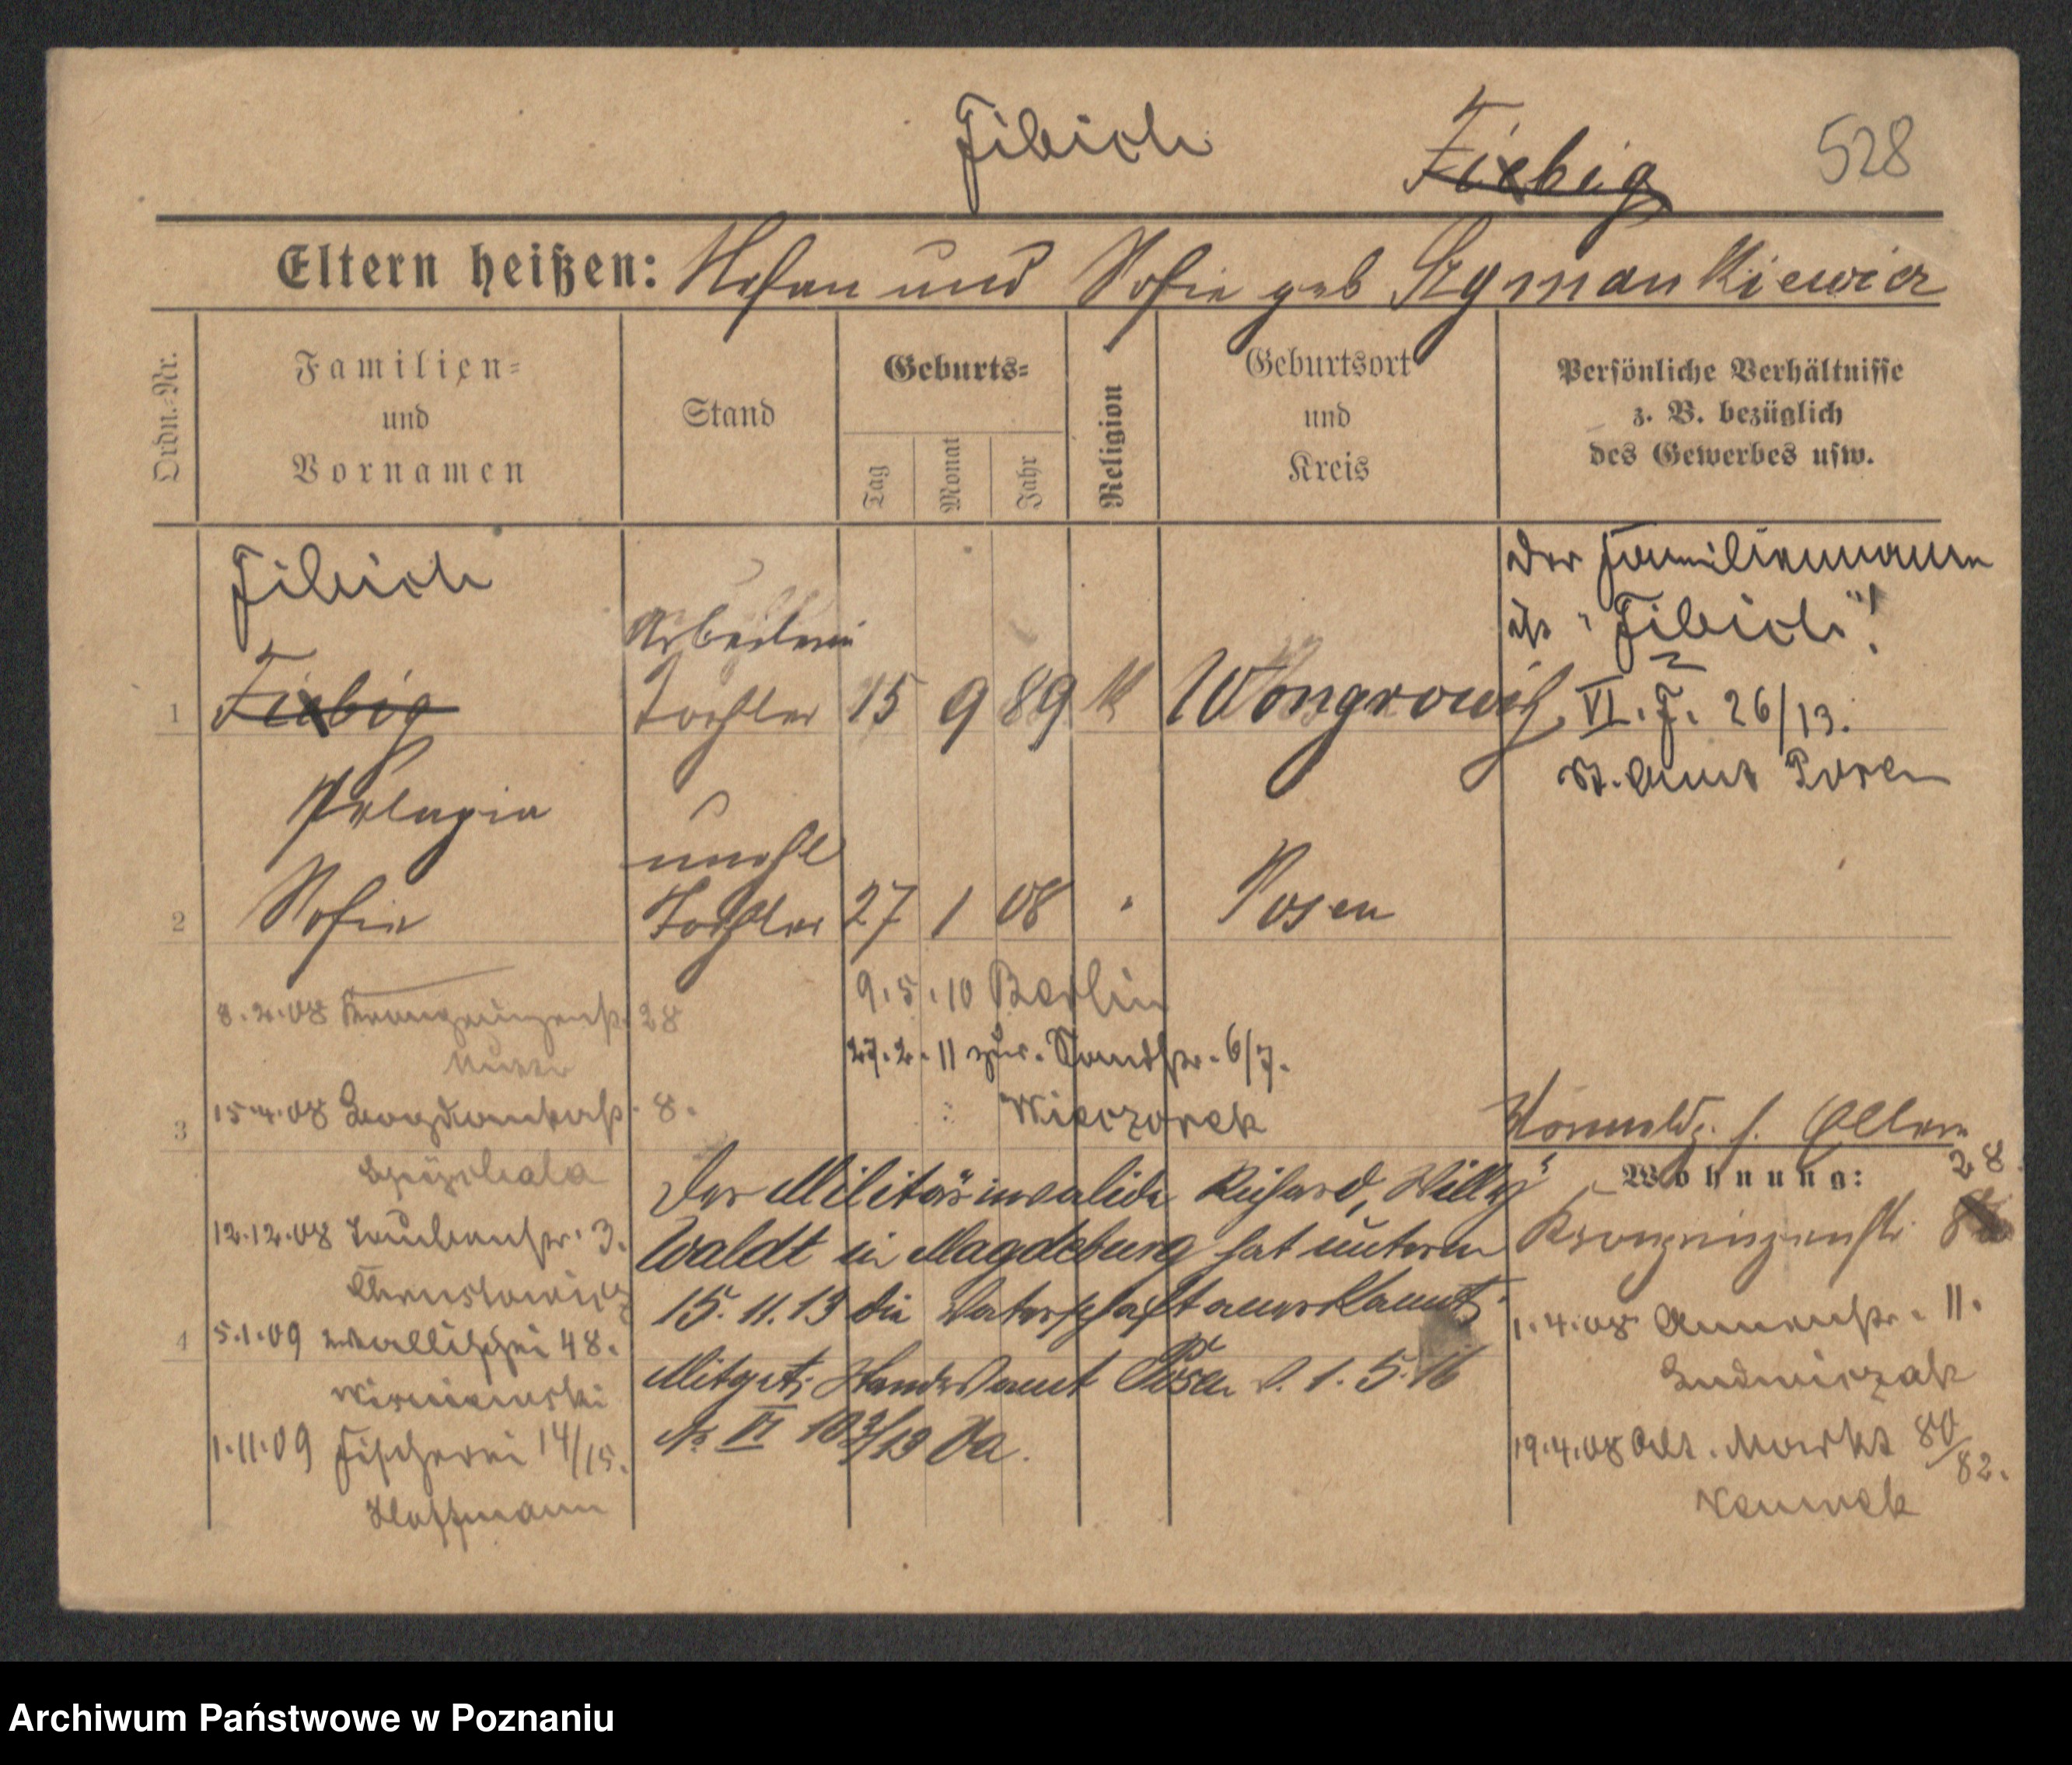 Fibich
Fiebig
528
Eltern heißen: Stefan und Sofie geb Szymankiewicz
Ordn.-Nr.
Familien-
und
Vornamen
Stand
Geburts-
Tag
Monat
Jahr
Religion
Geburtsort
und
Kreis
Persönliche Verhältnisse
z. B. bezüglich
des Gewerbes usw.
Fibich
Der Familienname
ist "Fibich"!
Arbeiterin
1 Fiebig Tochter 15 9 89 k Wongrowitz
VI. F. 26/13.
St. Amt Posen
Pelagia
unehl
2 Sofie Tochter 27 1 08 " Posen
8.2.08 Kronprinzenstr. 28
9.5.10 Berlin
27.2.11 zur. Sandstr. 6/7.
Wieczorek
3
15.4.08 8.
12.12.08 Taubenstr. 3.
4
5.1.09 Wallischei 48.
Wisniewski
1.11.09 Fischerei 14/15.
Hoffmann
Der Militärinvalide Richard, Willy
Waldt in Magdeburg hat unterm
15.11.13 die Vaterschaft anerkannt.
Mitget. Standesamt Posen v. 1.5.16
No VI
Vormals. s. Eltern
Wohnung:
28
Kronprinzenstr.
1.4.08 Annenstr. 11.
Ludwiczak
19.4.08 Alt. Markt 80/82.
Archiwum Państwowe w Poznaniu